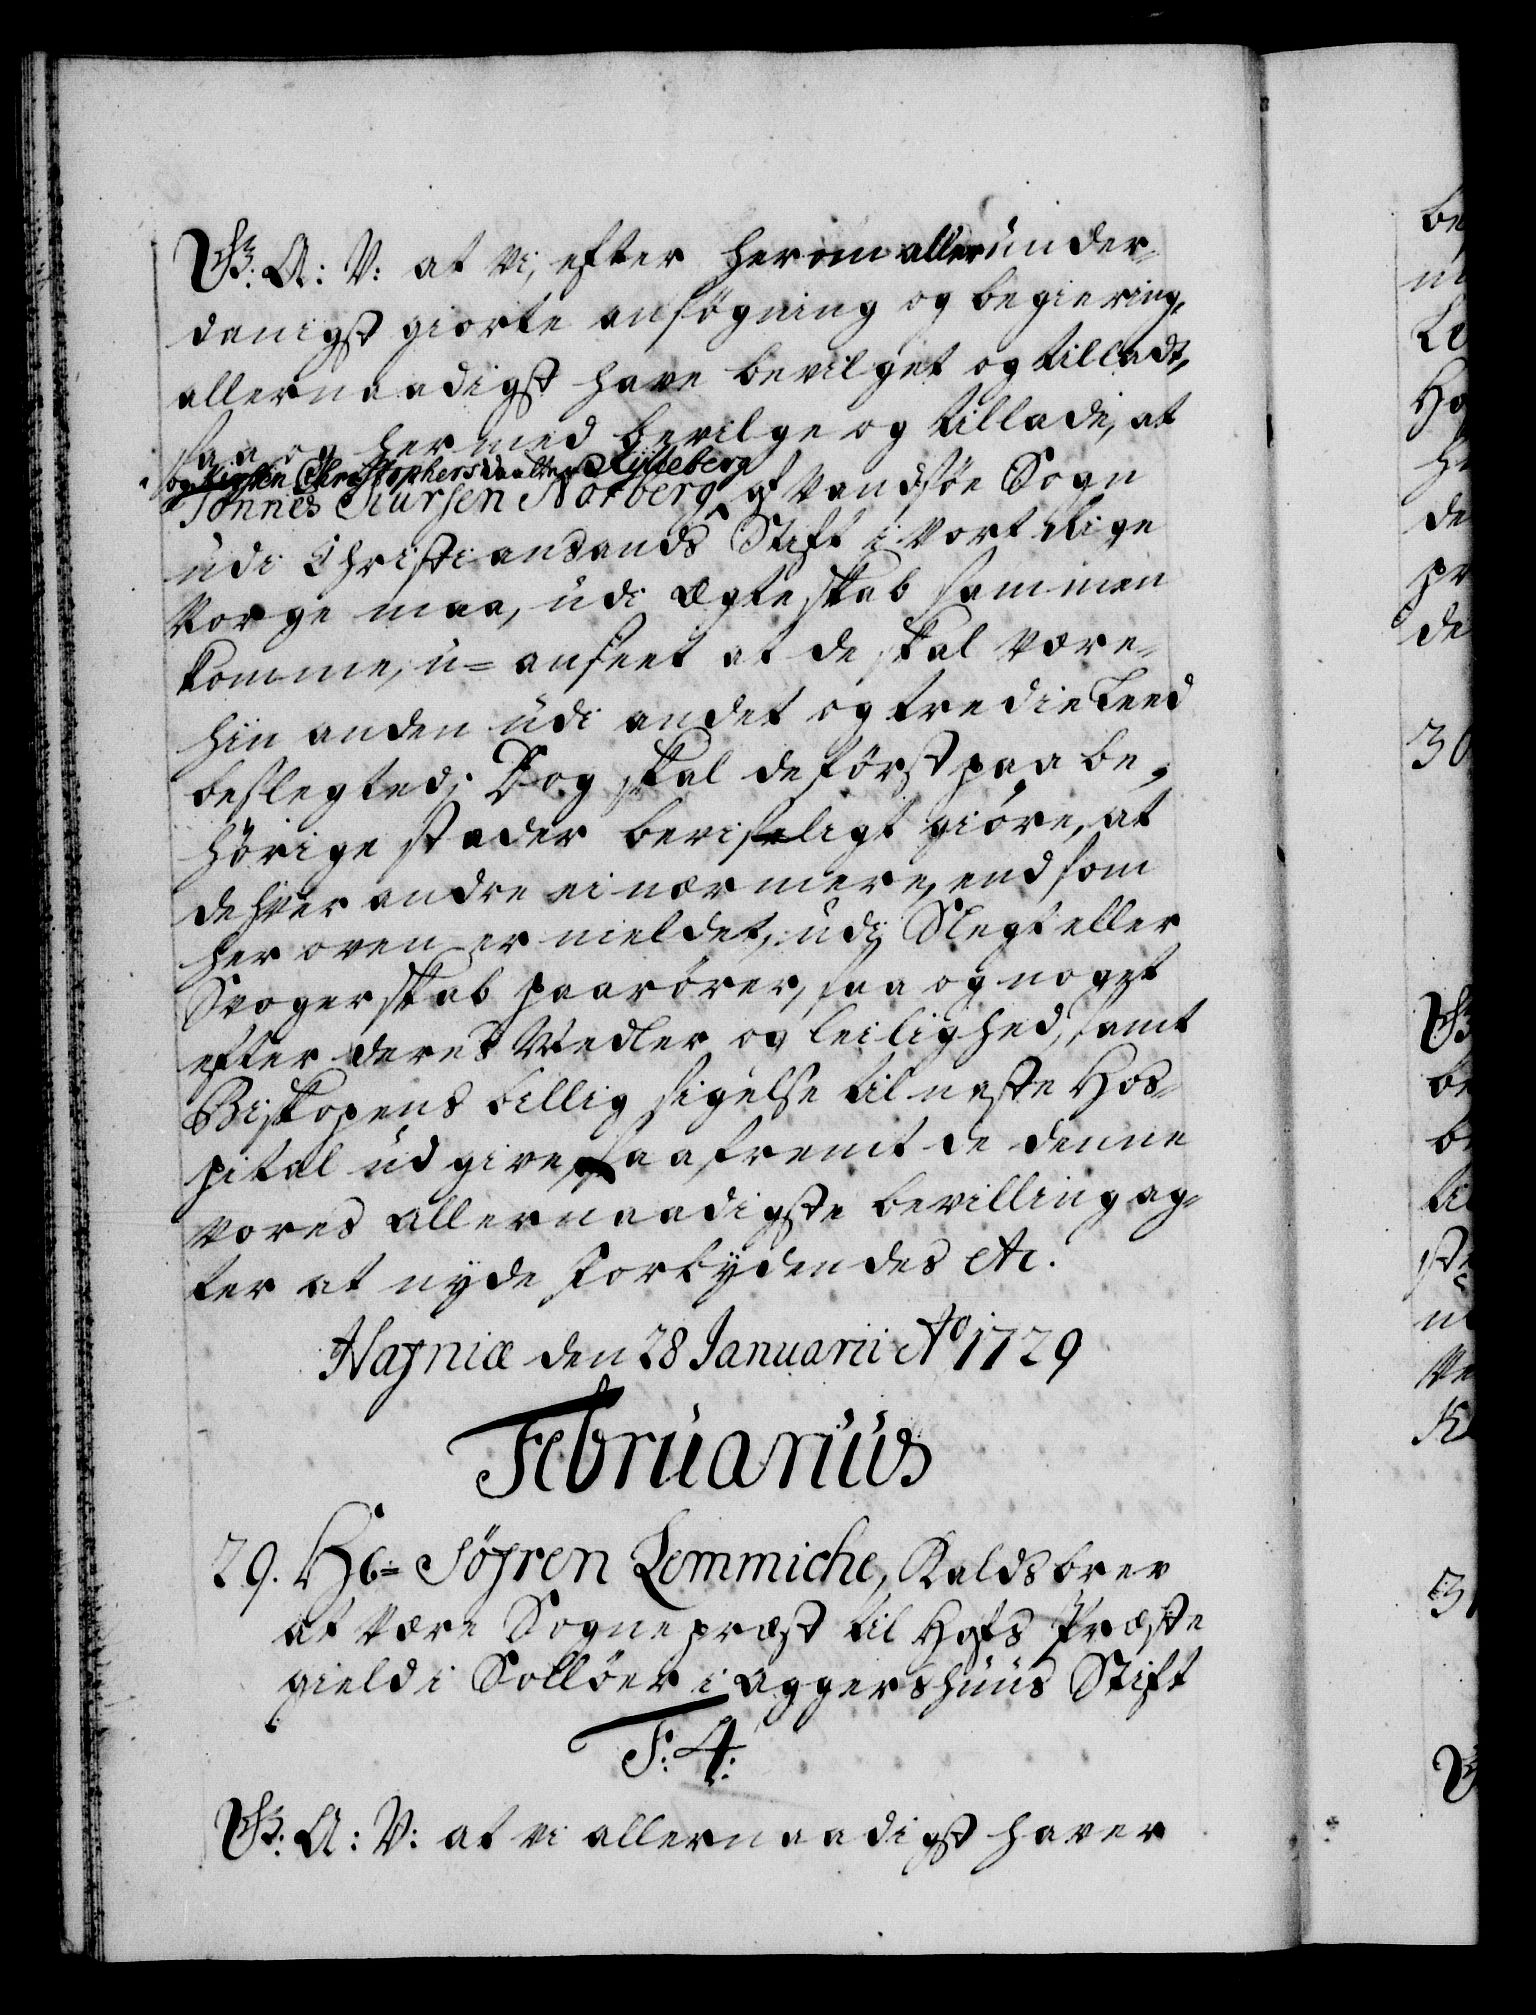 G: A: V: at vi, efter herom allerunder-
danigst giorte ansøgning og begiering,
allernaadigst have bevilget og tilladt,
saa og hermed bevilge og tillade, at
og Kirsten Christophersdaatter Rylleberg
Tönnes Siursen Norberg af Vandsöe Sogn
udi Christiansands Stift i vort Rige
Norge maa, udi Ægteskab sammen
komme, u-anseet at de skal være
hin anden udi andet og tredie Leed
beslegted; Dog skal de först paa be-
hörige stæder beviseligt giöre, at
de hver andre ei nærmere, end som
her oven er meldet, udi Slegt eller
Svogerskab paarörer, saa og noget
efter deres Midler og leilighed, samt
Biskopens billig sigelse til neste Hos-
pital udgive, saafremt de denne
vores allernaadigste bevilling ag-
ter at nyde Forbydendes etc.
Hafniæ den 28 Januarii Ao 1729
Februarius
29. Hr= Söfren Lemmiche, Kaldsbrev
at være Sognepræst til Hofs Præste
gield i Sollöer i Aggershuus Stift
F: 4:
G: A: V: at vi allernaadigst haver